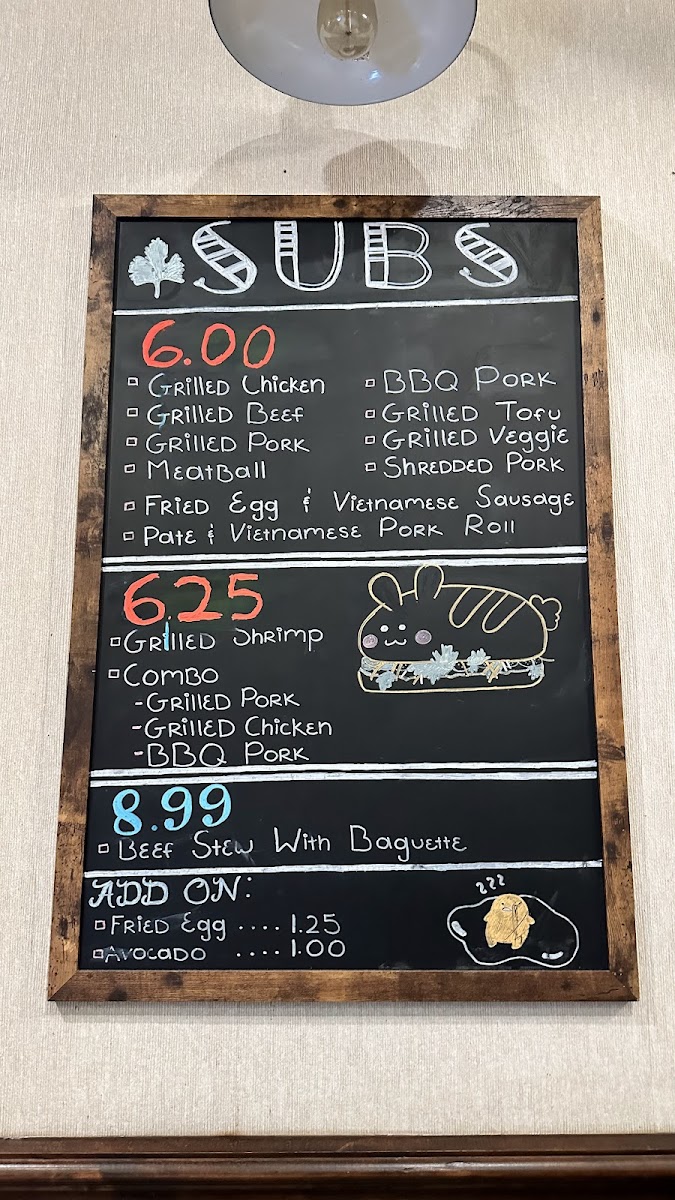 SUBS
6.00
Grilled Chicken
Grilled Beef
Grilled Pork
Meatball
BBQ Pork
Grilled Tofu
Grilled Veggie
Shredded Pork
Fried Egg & Vietnamese Sausage
Pate & Vietnamese Pork Roll
6.25
Grilled Shrimp
Combo
-Grilled Pork
-Grilled Chicken
-BBQ Pork
8.99
Beef Stew With Baguette
ADD ON:
Fried Egg .... 1.25
Avocado .... 1.00
zzz